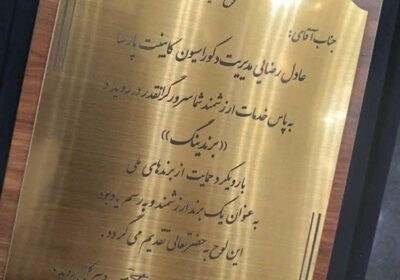 جناب آقای:
عادل رضایی مدیریت دکوراسیون کابینت پارسا
به پاس خدمات ارزشمند شما سرور گرانقدر در رویداد
((برندینگ))
با رویکرد حمایت از برندهای ملی
به عنوان یک برند ارزشمند و به رسم یادبود
این لوح به حضرتعالی تقدیم می گردد.